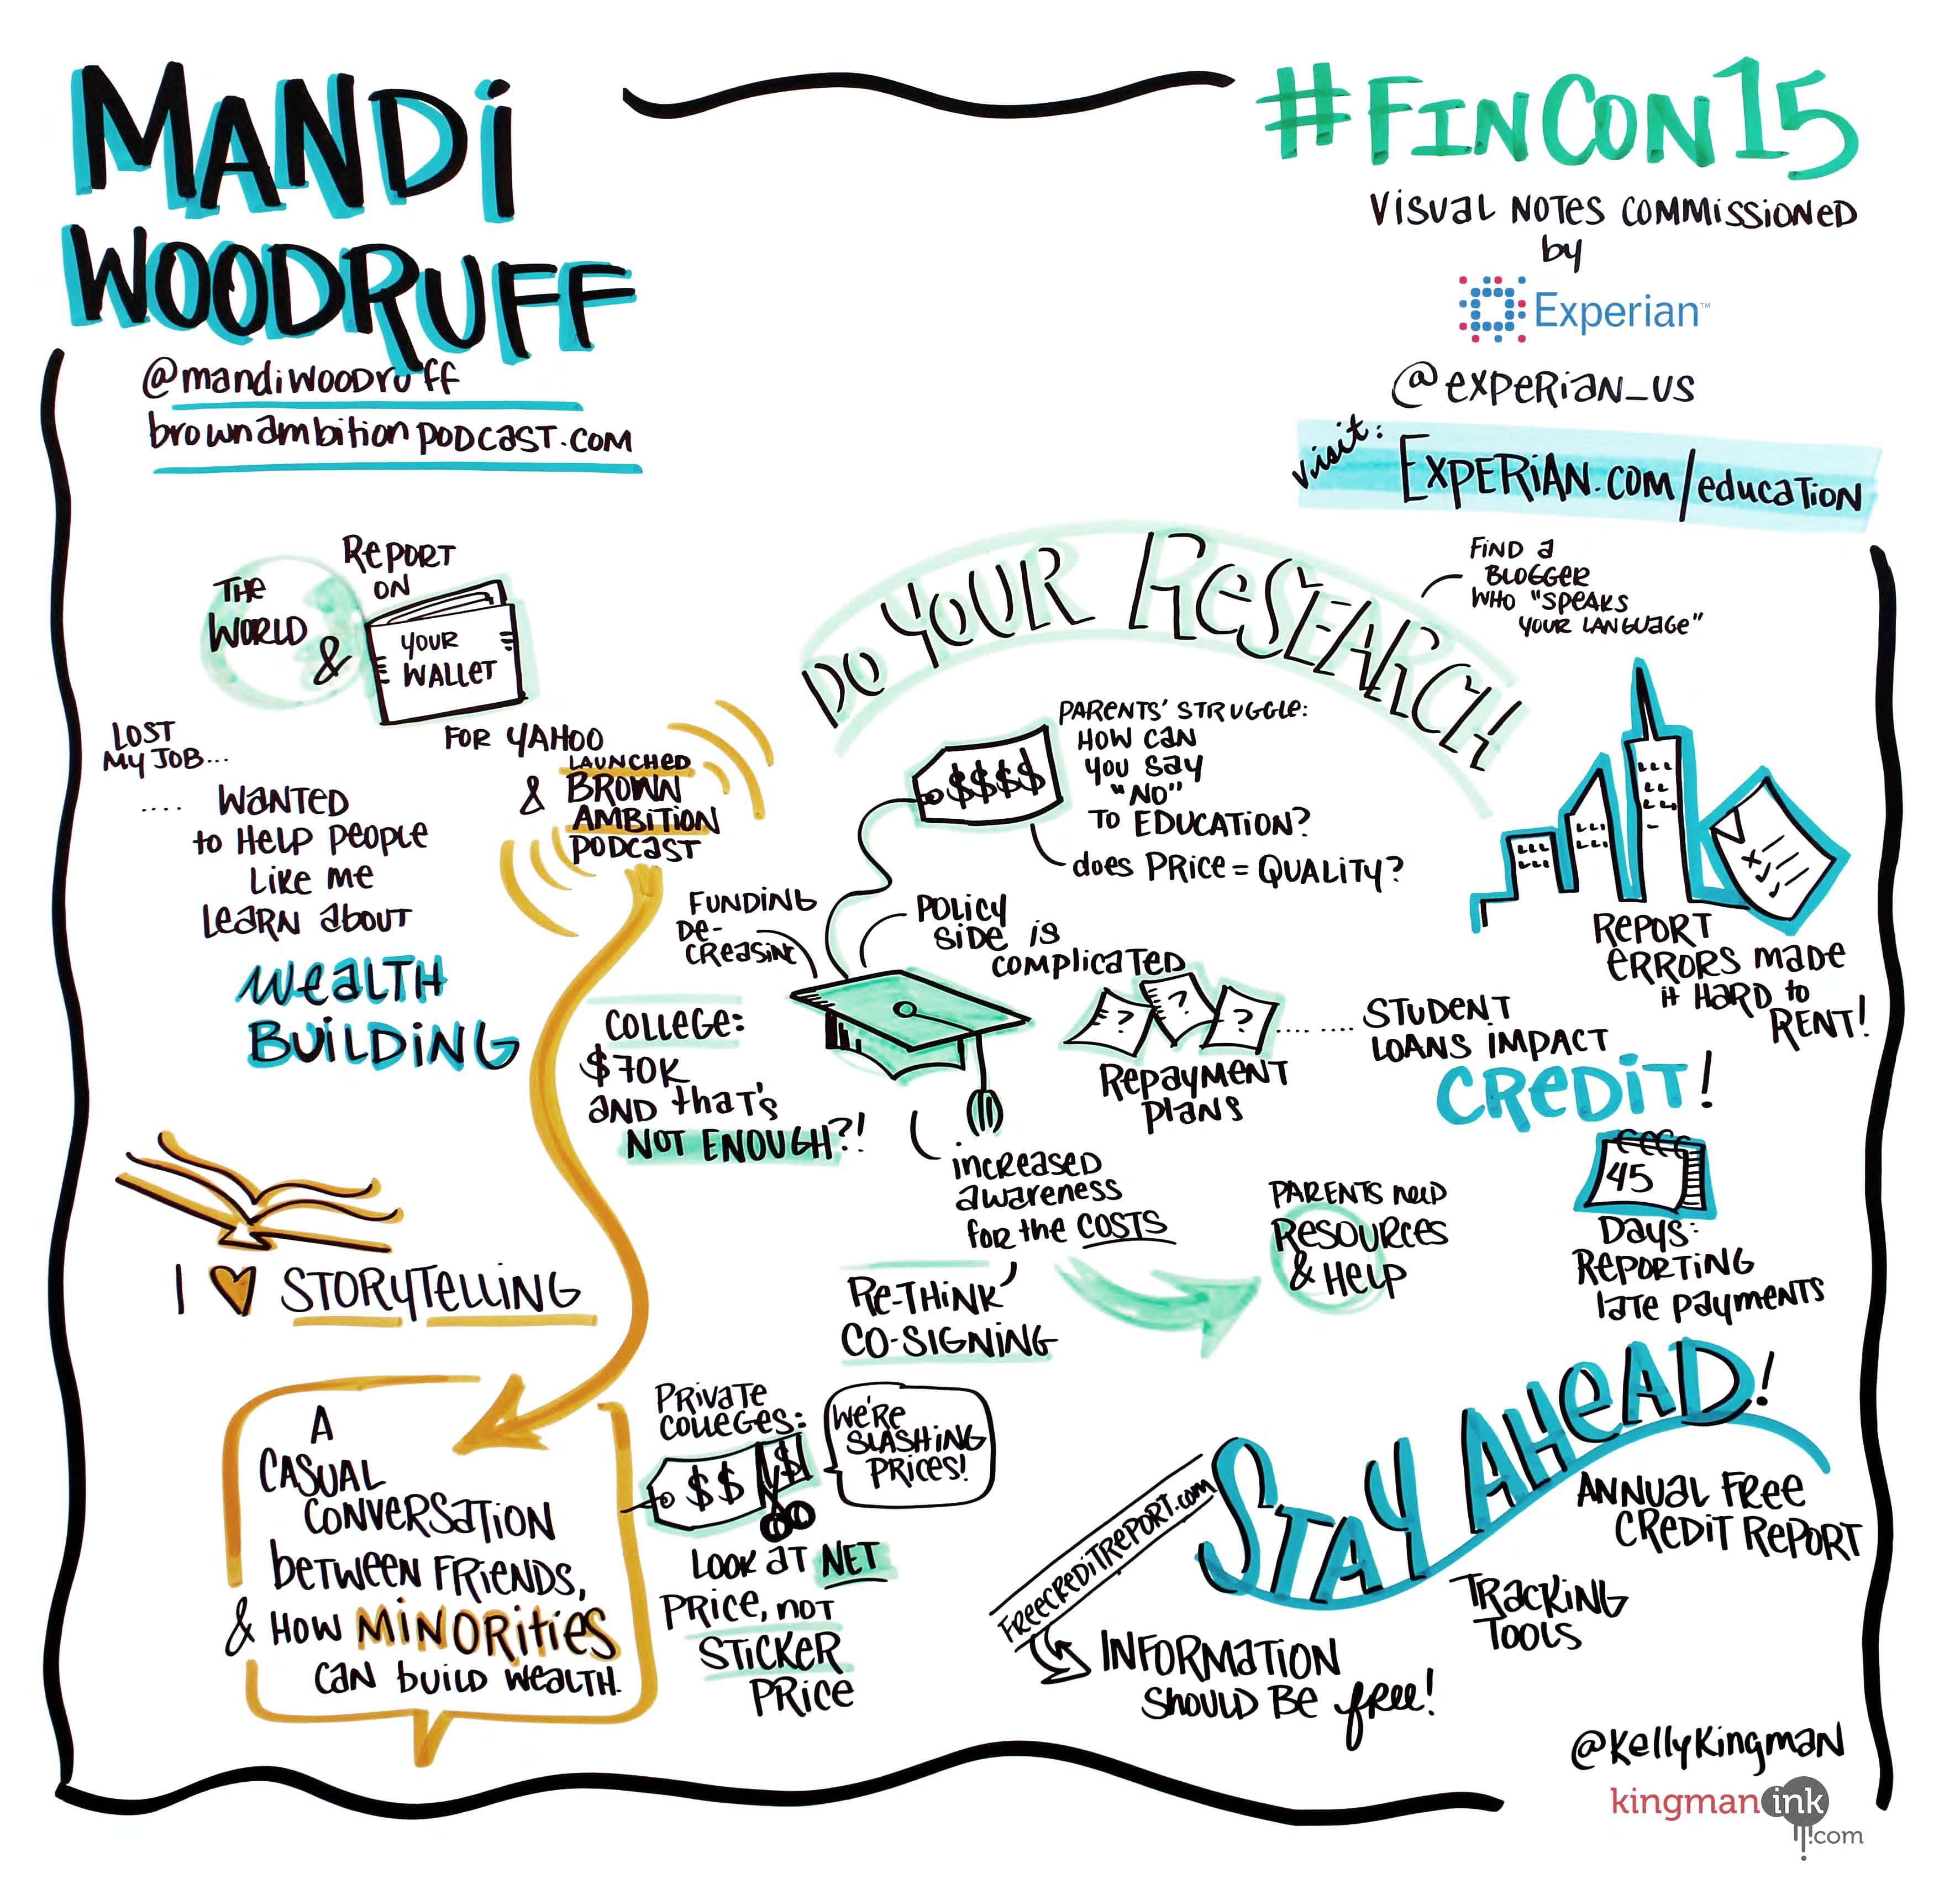 MANDI
WOODRUFF
@mandiwoodruff
brownambitionpodcast.com
#FINCON15
VISUAL NOTES COMMISSIONED
by
Experian™
@experian_us
visit:
EXPERIAN.COM/education
THE
WORLD
&
REPORT
ON
YOUR
WALLET
FOR YAHOO
LOST
MY JOB...
.... WANTED
to HELP PEOPLE
LIKE ME
LEARN about
WEALTH
BUILDING
&
LAUNCHED
BROWN
AMBITION
PODCAST
I ♥ STORYTELLING
A
CASUAL
CONVERSATION
between FRIENDS,
& HOW MINORITIES
CAN build WEALTH.
DO YOUR RESEARCH
FIND a
BLOGGER
WHO "SPEAKS
YOUR LANGUAGE"
$$$$
PARENTS' STRUGGLE:
HOW CAN
YOU SAY
"NO"
TO EDUCATION?
does PRICE = QUALITY?
FUNDING
DE-
CREASING
POLICY
SIDE IS
COMPLICATED
COLLEGE:
$70K
AND that's
NOT ENOUGH?!
? ? ?
Repayment
Plans
...... STUDENT
LOANS IMPACT
CREDIT!
REPORT
ERRORS made
it HARD to
RENT!
increased
awareness
for the COSTS
RE-THINK
CO-SIGNING
PARENTS need
RESOURCES
& HELP
45
Days:
REPORTING
late payments
PRIVATE
COLLEGES:
$$ $
WE'RE
SLASHING
PRICES!
LOOK at NET
PRICE, NOT
STICKER
PRICE
STAY AHEAD!
FREECREDITREPORT.com
INFORMATION
Should BE free!
ANNUAL FREE
CREDIT REPORT
TRACKING
TOOLS
@kellykingman
kingman ink
.com